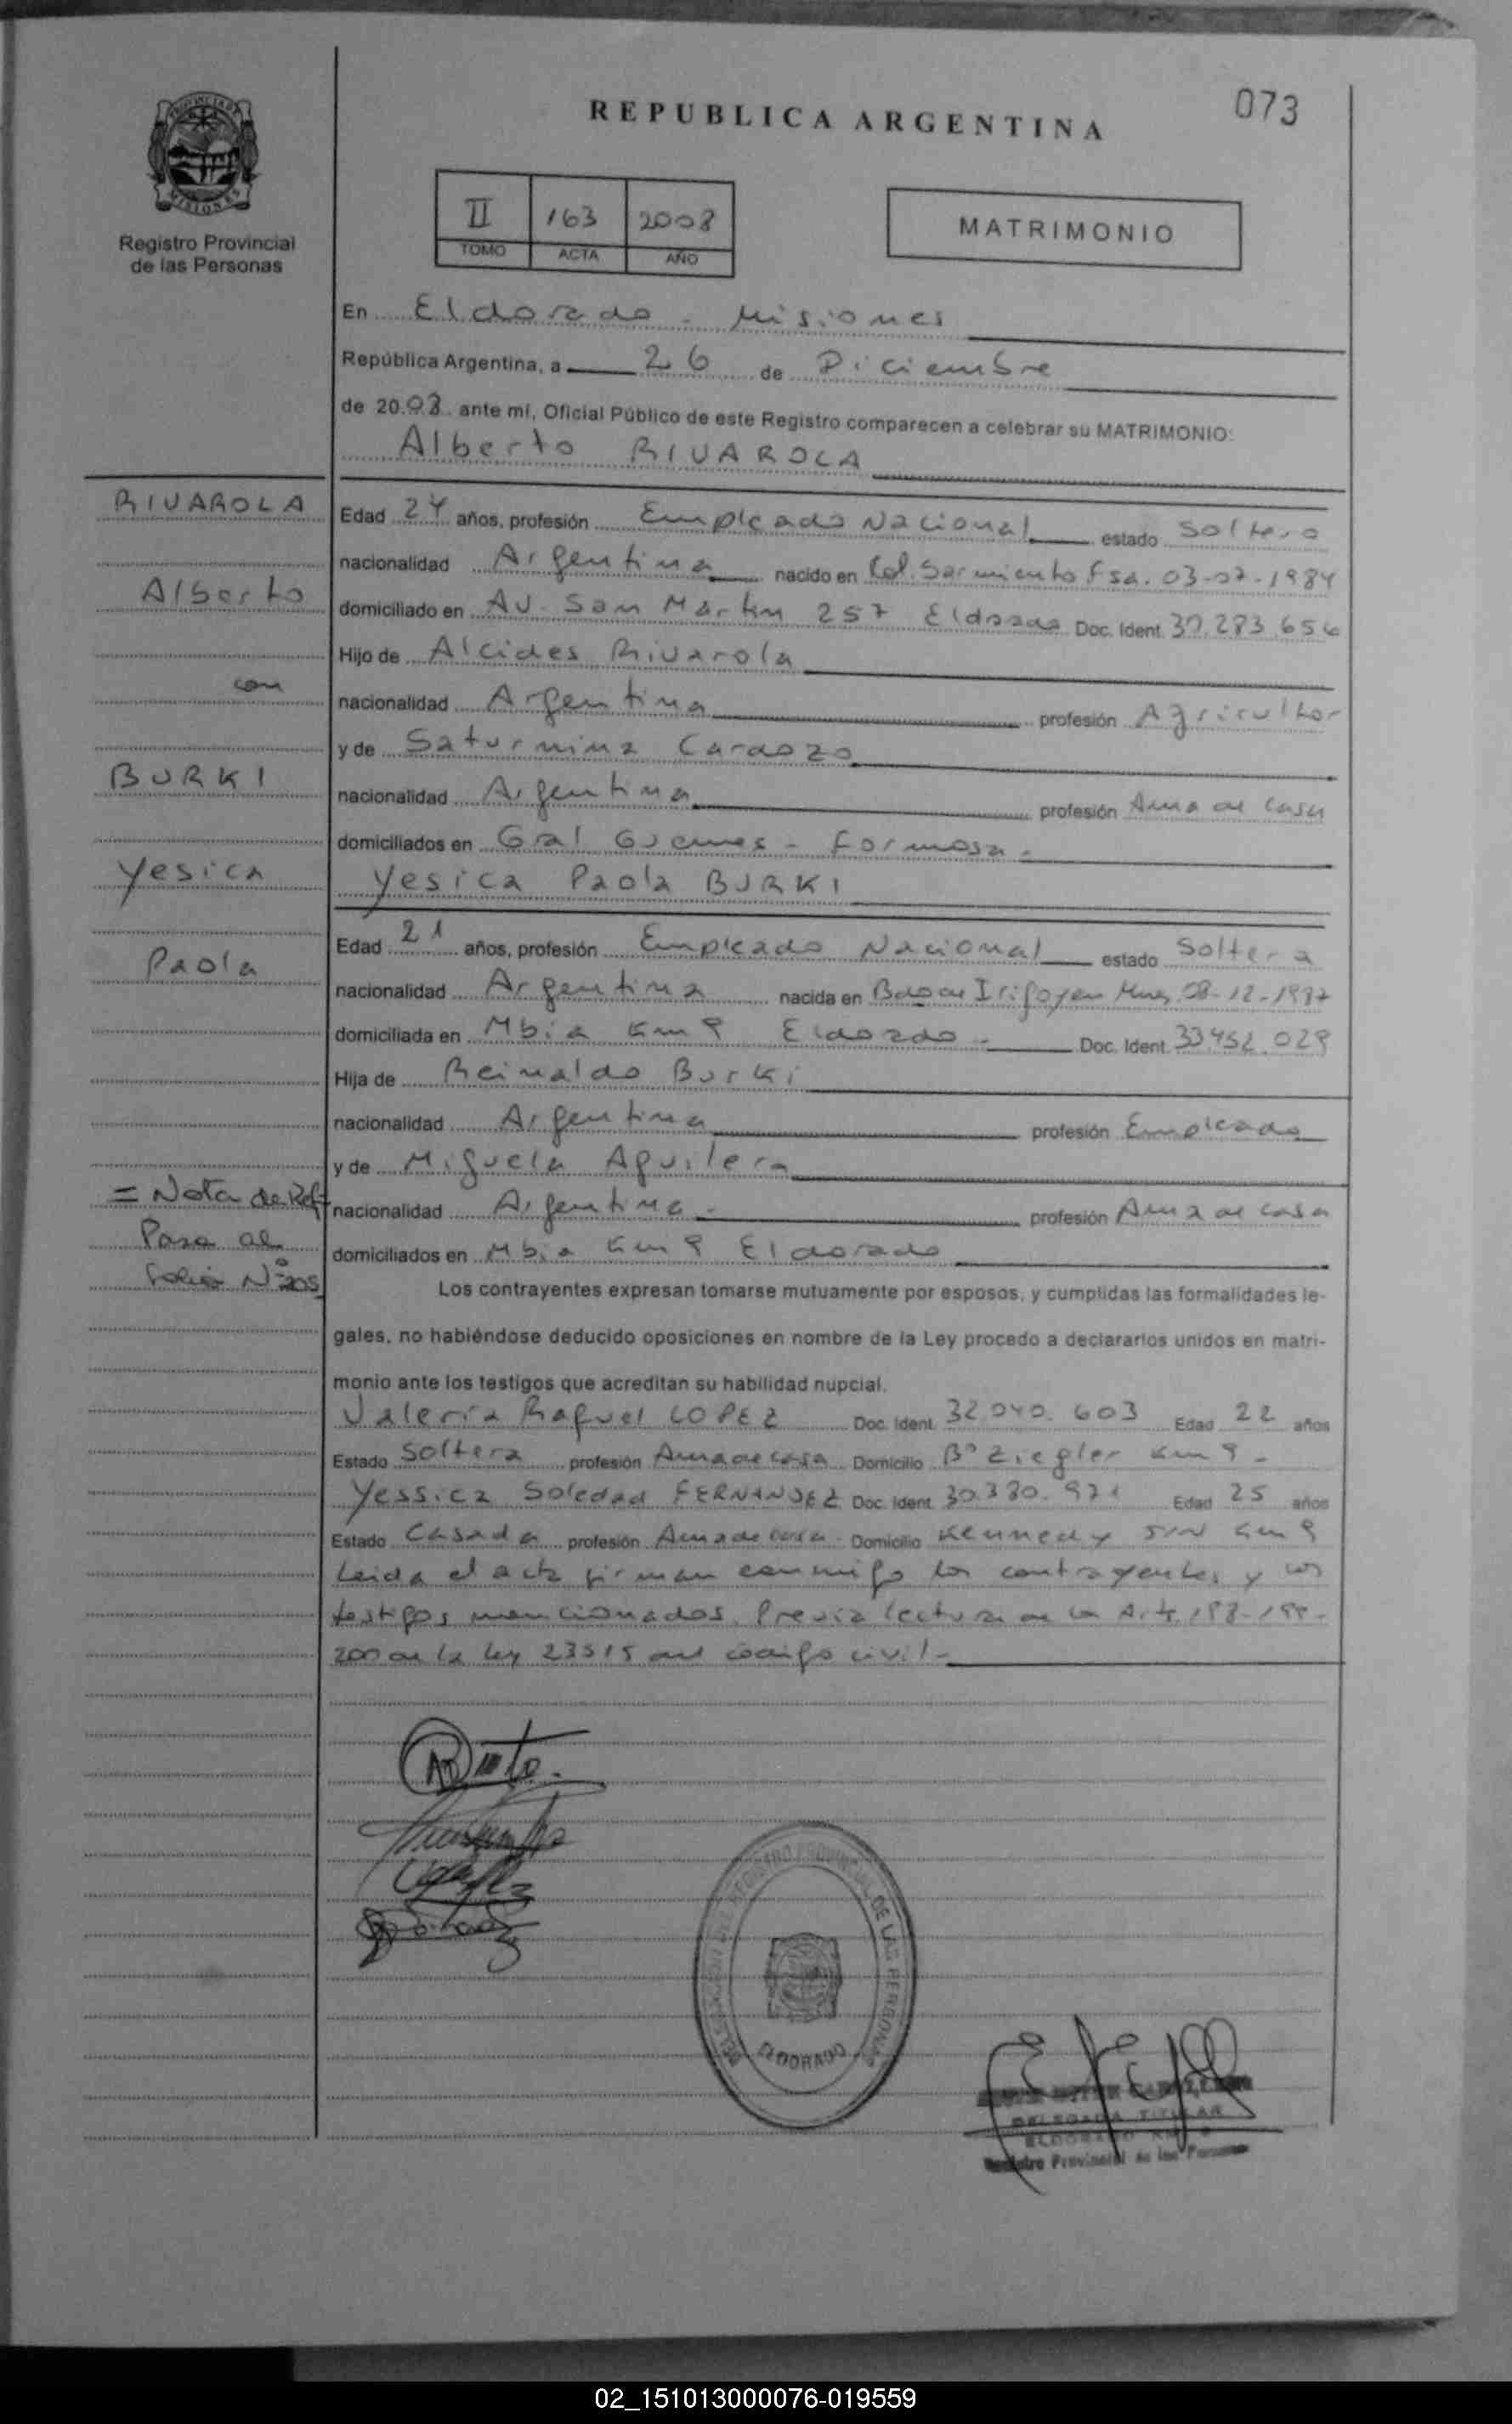 073
REPUBLICA ARGENTINA
PROVINCIA DE
MISIONES
Registro Provincial
de las Personas
II 163 2008
TOMO ACTA AÑO
MATRIMONIO
En Eldorado - Misiones
República Argentina, a 26 de Diciembre
de 20.08. ante mí, Oficial Público de este Registro comparecen a celebrar su MATRIMONIO:
Alberto RIVAROLA
RIVAROLA
Alberto
con
BURKI
Yesica
Paola
= Nota de Ref=
Pasa al
Folio Nº 205
Edad 24 años, profesión Empleado Nacional estado Soltero
nacionalidad Argentina nacido en Col. Sarmiento Fsa. 03-07-1984
domiciliado en Av. San Martin 257 Eldorado Doc. Ident. 30.283.656
Hijo de Alcides Rivarola
nacionalidad Argentina profesión Agricultor
y de Saturnina Cardozo
nacionalidad Argentina profesión Ama de casa
domiciliados en Gral Guemes - Formosa -
Yesica Paola BURKI
Edad 21 años, profesión Empleado Nacional estado Soltera
nacionalidad Argentina nacida en Bdo de Irigoyen Mnes 08-12-1987
domiciliada en Mbia Km 9 Eldorado - Doc. Ident. 33.452.029
Hija de Reinaldo Burki
nacionalidad Argentina profesión Empleado
y de Miguela Aguilera
nacionalidad Argentina - profesión Ama de casa
domiciliados en Mbia Km 9 Eldorado
Los contrayentes expresan tomarse mutuamente por esposos, y cumplidas las formalidades le-
gales, no habiéndose deducido oposiciones en nombre de la Ley procedo a declararlos unidos en matri-
monio ante los testigos que acreditan su habilidad nupcial.
Valeria Raquel LOPEZ Doc. Ident. 32.040.603 Edad 22 años
Estado Soltera profesión Ama de casa Domicilio Bº Ziegler Km 9 -
Yessica Soledad FERNANDEZ Doc. Ident. 30.380.971 Edad 25 años
Estado Casada profesión Ama de casa - Domicilio Kennedy S/N Km 9
Leida el acta firman conmigo los contrayentes y los
testigos mencionados. Previa lectura de los Arts 198-199-
200 de la ley 23515 del codigo civil -
DELEGACION DEL REGISTRO PROVINCIAL DE LAS PERSONAS
ELDORADO
DELEGADA TITULAR
ELDORADO KM 9
Registro Provincial de las Personas
02_151013000076-019559